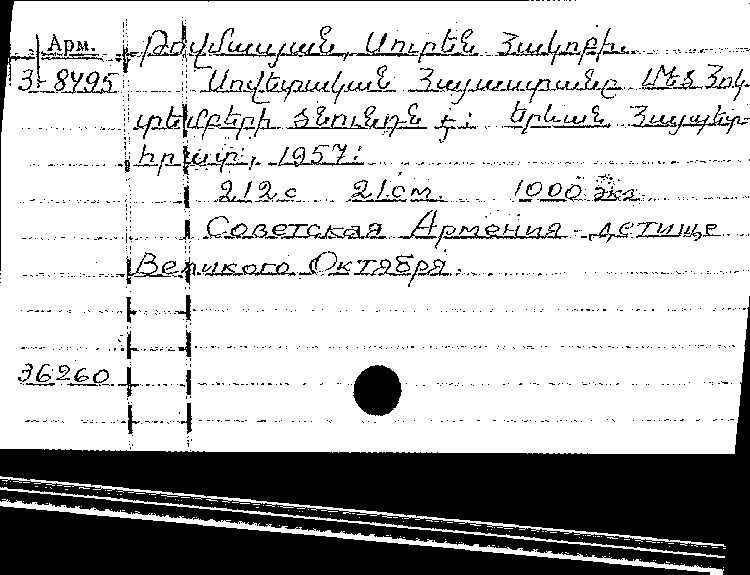 Арм. Թովմասյան, Սուրեն Հակոբի.
3-8495 Սովետական Հայաստանը Մեծ Հոկ-
տեմբերի ծնունդն է: Երևան, Հայպետ-
հրատ, 1957:
212 с 21 см. 1000 экз.
Советская Армения - детище
Великого Октября.
36260